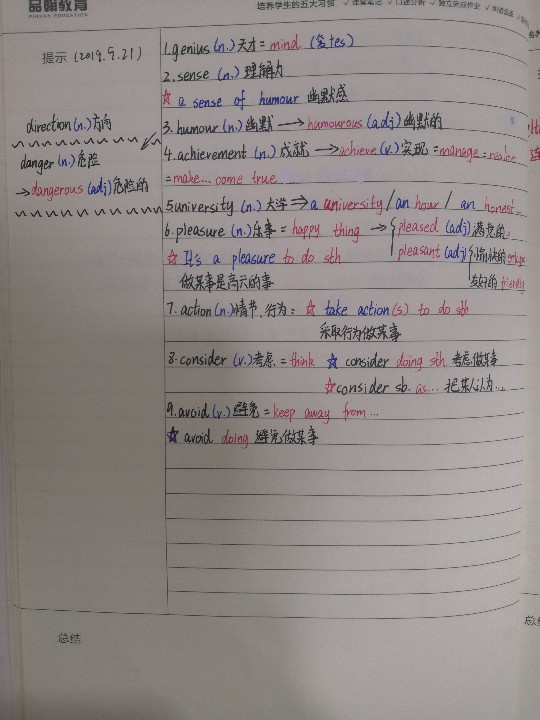 品翰教育
培养学生的五大习惯 ✓课堂笔记 ✓口述分析 ✓独立完成作业
提示 (2019.9.21)
direction (n.) 方向
danger (n.) 危险
→dangerous (adj) 危险的
1.genius (n.) 天才 = mind (es)
2.sense (n.) 理解力
☆ a sense of humour 幽默感
3.humour (n.) 幽默 → humourous (adj) 幽默的
4.achievement (n.) 成就 → achieve (v.) 实现 = manage = realize
= make... come true
5university (n.) 大学 ⇒ a university / an hour / an honest
6.pleasure (n.) 乐事 = happy thing → pleased (adj) 满意的
☆ It's a pleasure to do sth pleasant (adj) 愉快的
做某事是高兴的事 友好的 friendly
7.action (n.) 情节、行为: ☆ take action(s) to do sth
采取行为做某事
8.consider (v.) 考虑 = think ☆ consider doing sth 考虑做某事
☆consider sb. as... 把某人认为...
9.avoid (v.) 避免 = keep away from...
☆ avoid doing 避免做某事
总结